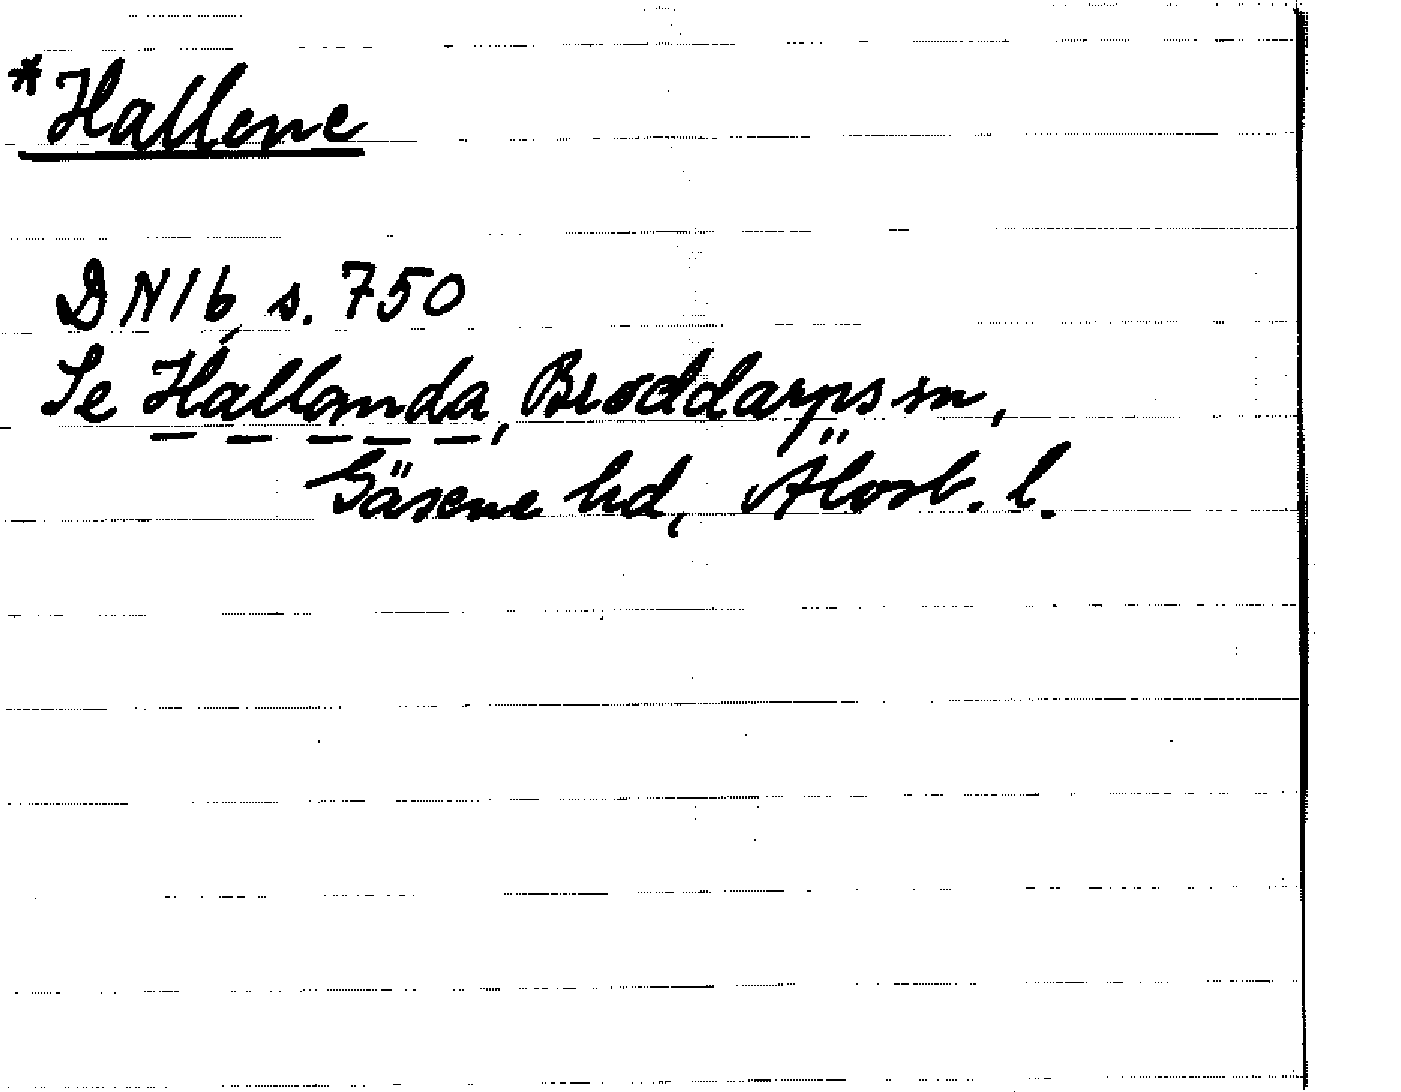 *Hallene
DN16, s. 750
Se Hallanda, Broddarps sn,
Gäsene hd, Älvsb. l.